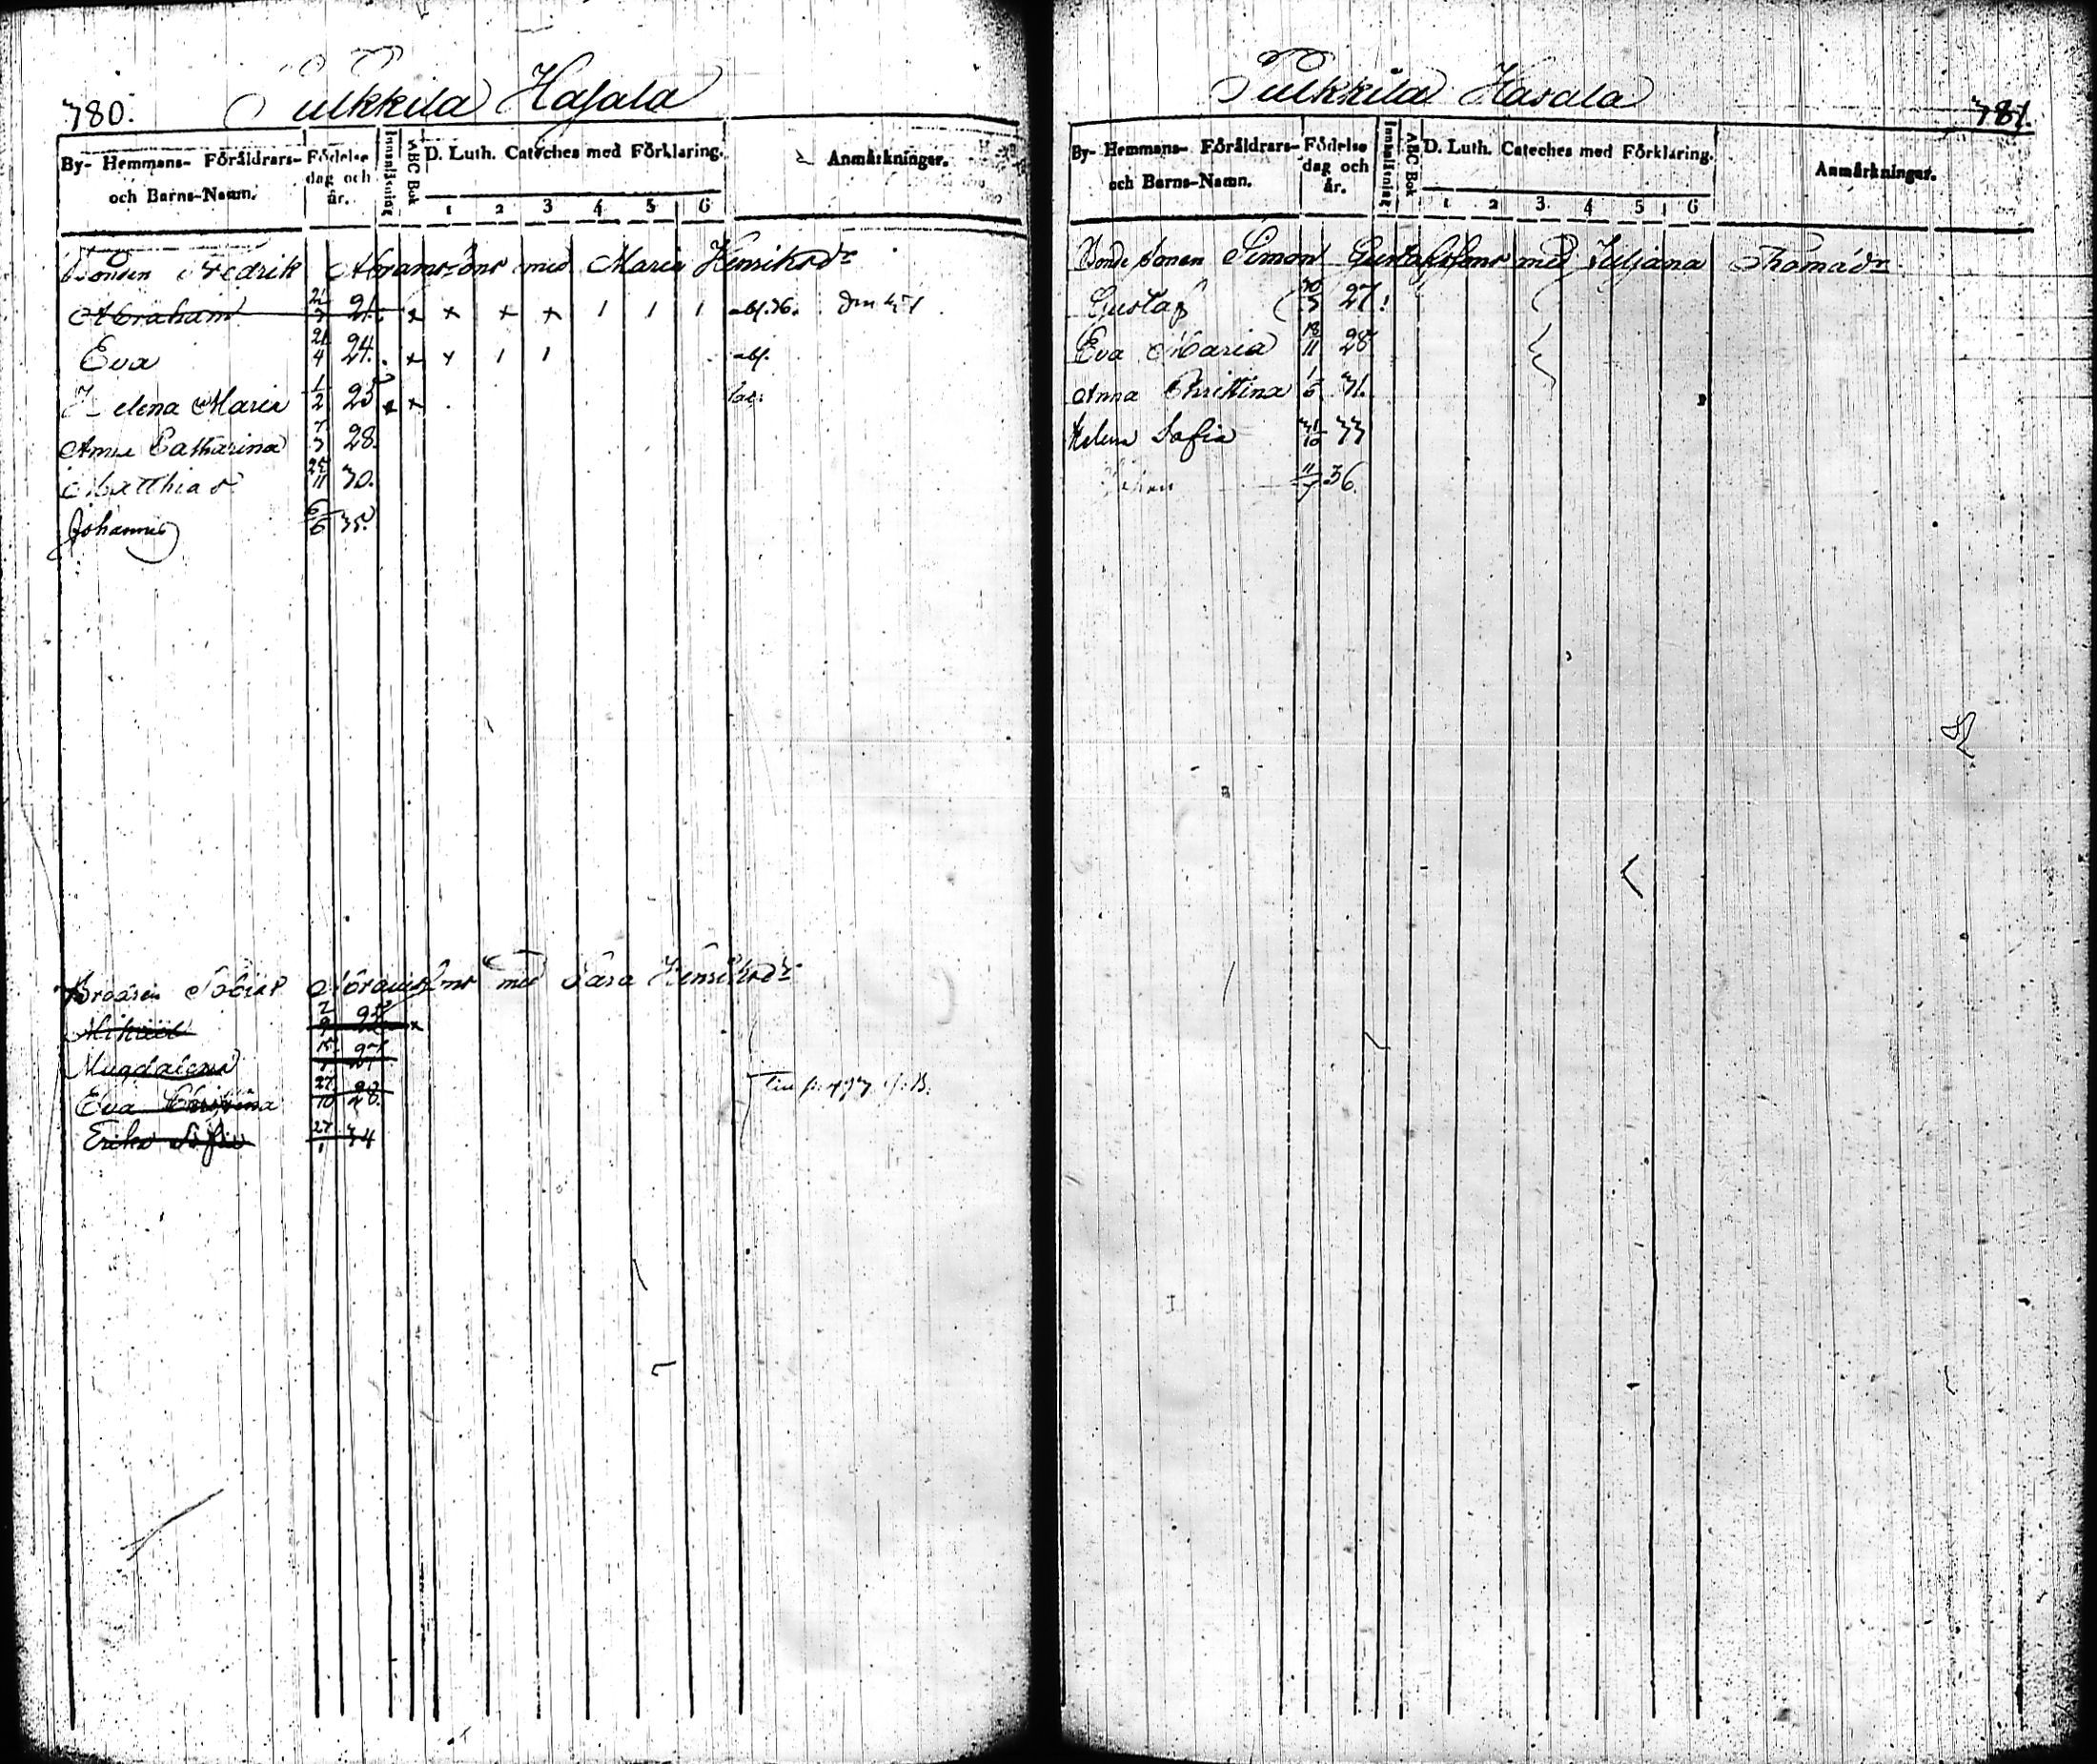 780.
Pulkkila Hasala
By- Hemmans- Föräldrars- och Barns-Namn.
Födelse dag och år.
Innanläsning
ABC Bok
D. Luth. Cateches med Förklaring.
1 2 3 4 5 6
Anmärkningar.
Bonden Fredrik Abramsons med Maria Henriksdr
Abraham 21. x x x x 1 1 1 abs. 36.
Eva 21/4 24. x x 1 1 abs.
Helena Maria 1/2 25 x x
Anna Catharina 28.
Matthias 25/11 30.
Johannes 6/6 35.
Brodren Tobias Abramsons med Sara Henriksdr
Mihael 2/9 25 x
Magdalena
Eva Christina 27/10 28.
Erika Sofia 27/1 34
781.
Pulkkila Hasala
By- Hemmans- Föräldrars- och Barns-Namn.
Födelse dag och år.
Innanläsning
ABC Bok
D. Luth. Cateches med Förklaring.
1 2 3 4 5 6
Anmärkningar.
Bonde sonen Simon Gustafssons med Juljana Thomasdr
Gustaf 27
Eva Maria 18/11 28
Anna Christina 1/6 31.
Helena Sofia 31/10 33
Johan 11/7 36.